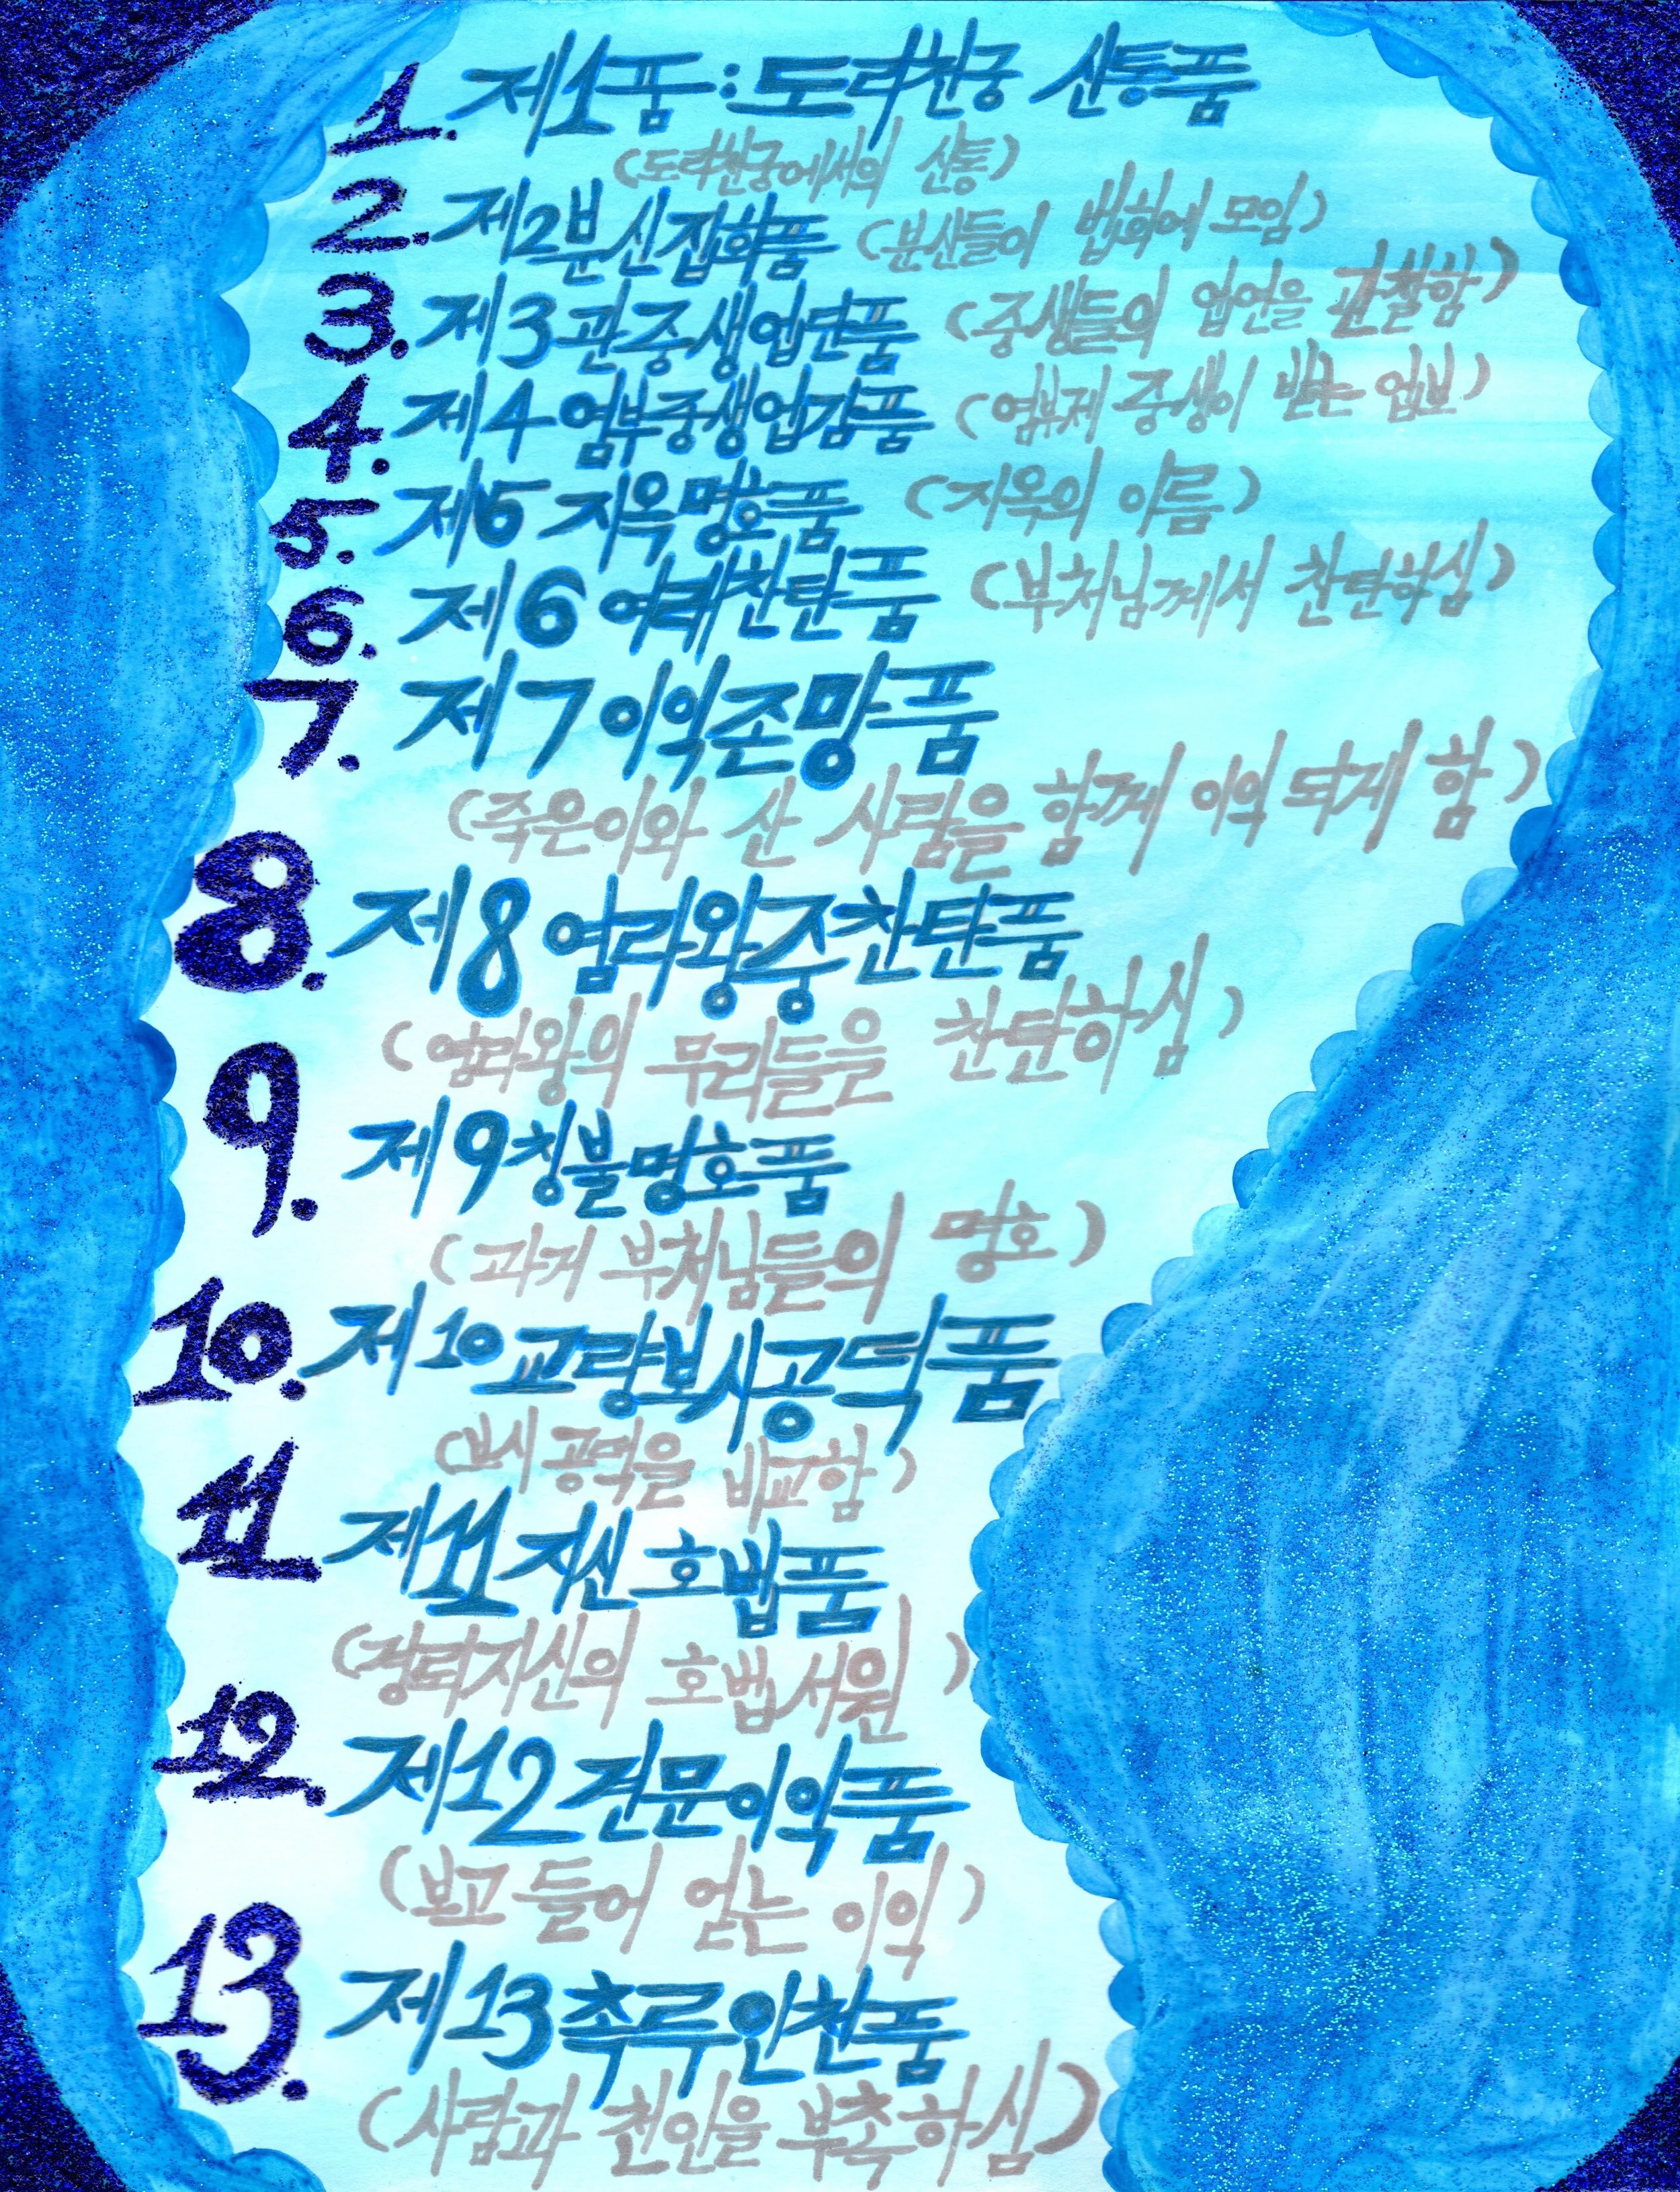 1. 제1품:도리천궁 신통품
(도리천궁에서의 신통)
2. 제2분신집회품 (분신들이 법회에 모임)
3. 제3관중생업연품 (중생들의 업연을 관찰함)
4. 제4염부중생업감품 (염부제 중생이 받는 업보)
5. 제5 지옥명호품 (지옥의 이름)
6. 제6 여래찬탄품 (부처님께서 찬탄하심)
7. 제7이익존망품
(죽은이와 산 사람을 함께 이익 되게 함)
8. 제8염라왕중찬탄품
(염라왕의 무리들을 찬탄하심)
9. 제9칭불명호품
(과거 부처님들의 명호)
10. 제10교량보시공덕품
(보시 공덕을 비교함)
11. 제11지신 호법품
(견뢰지신의 호법서원)
12. 제12견문이익품
(보고 들어 얻는 이익)
13. 제13촉루인천품
(사람과 천인을 부촉하심)